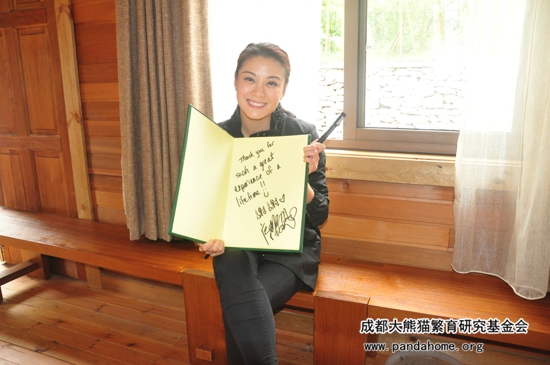 Thank you for
such a great
experience of a
lifetime!!
谢谢
成都大熊猫繁育研究基金会
www.pandahome.org